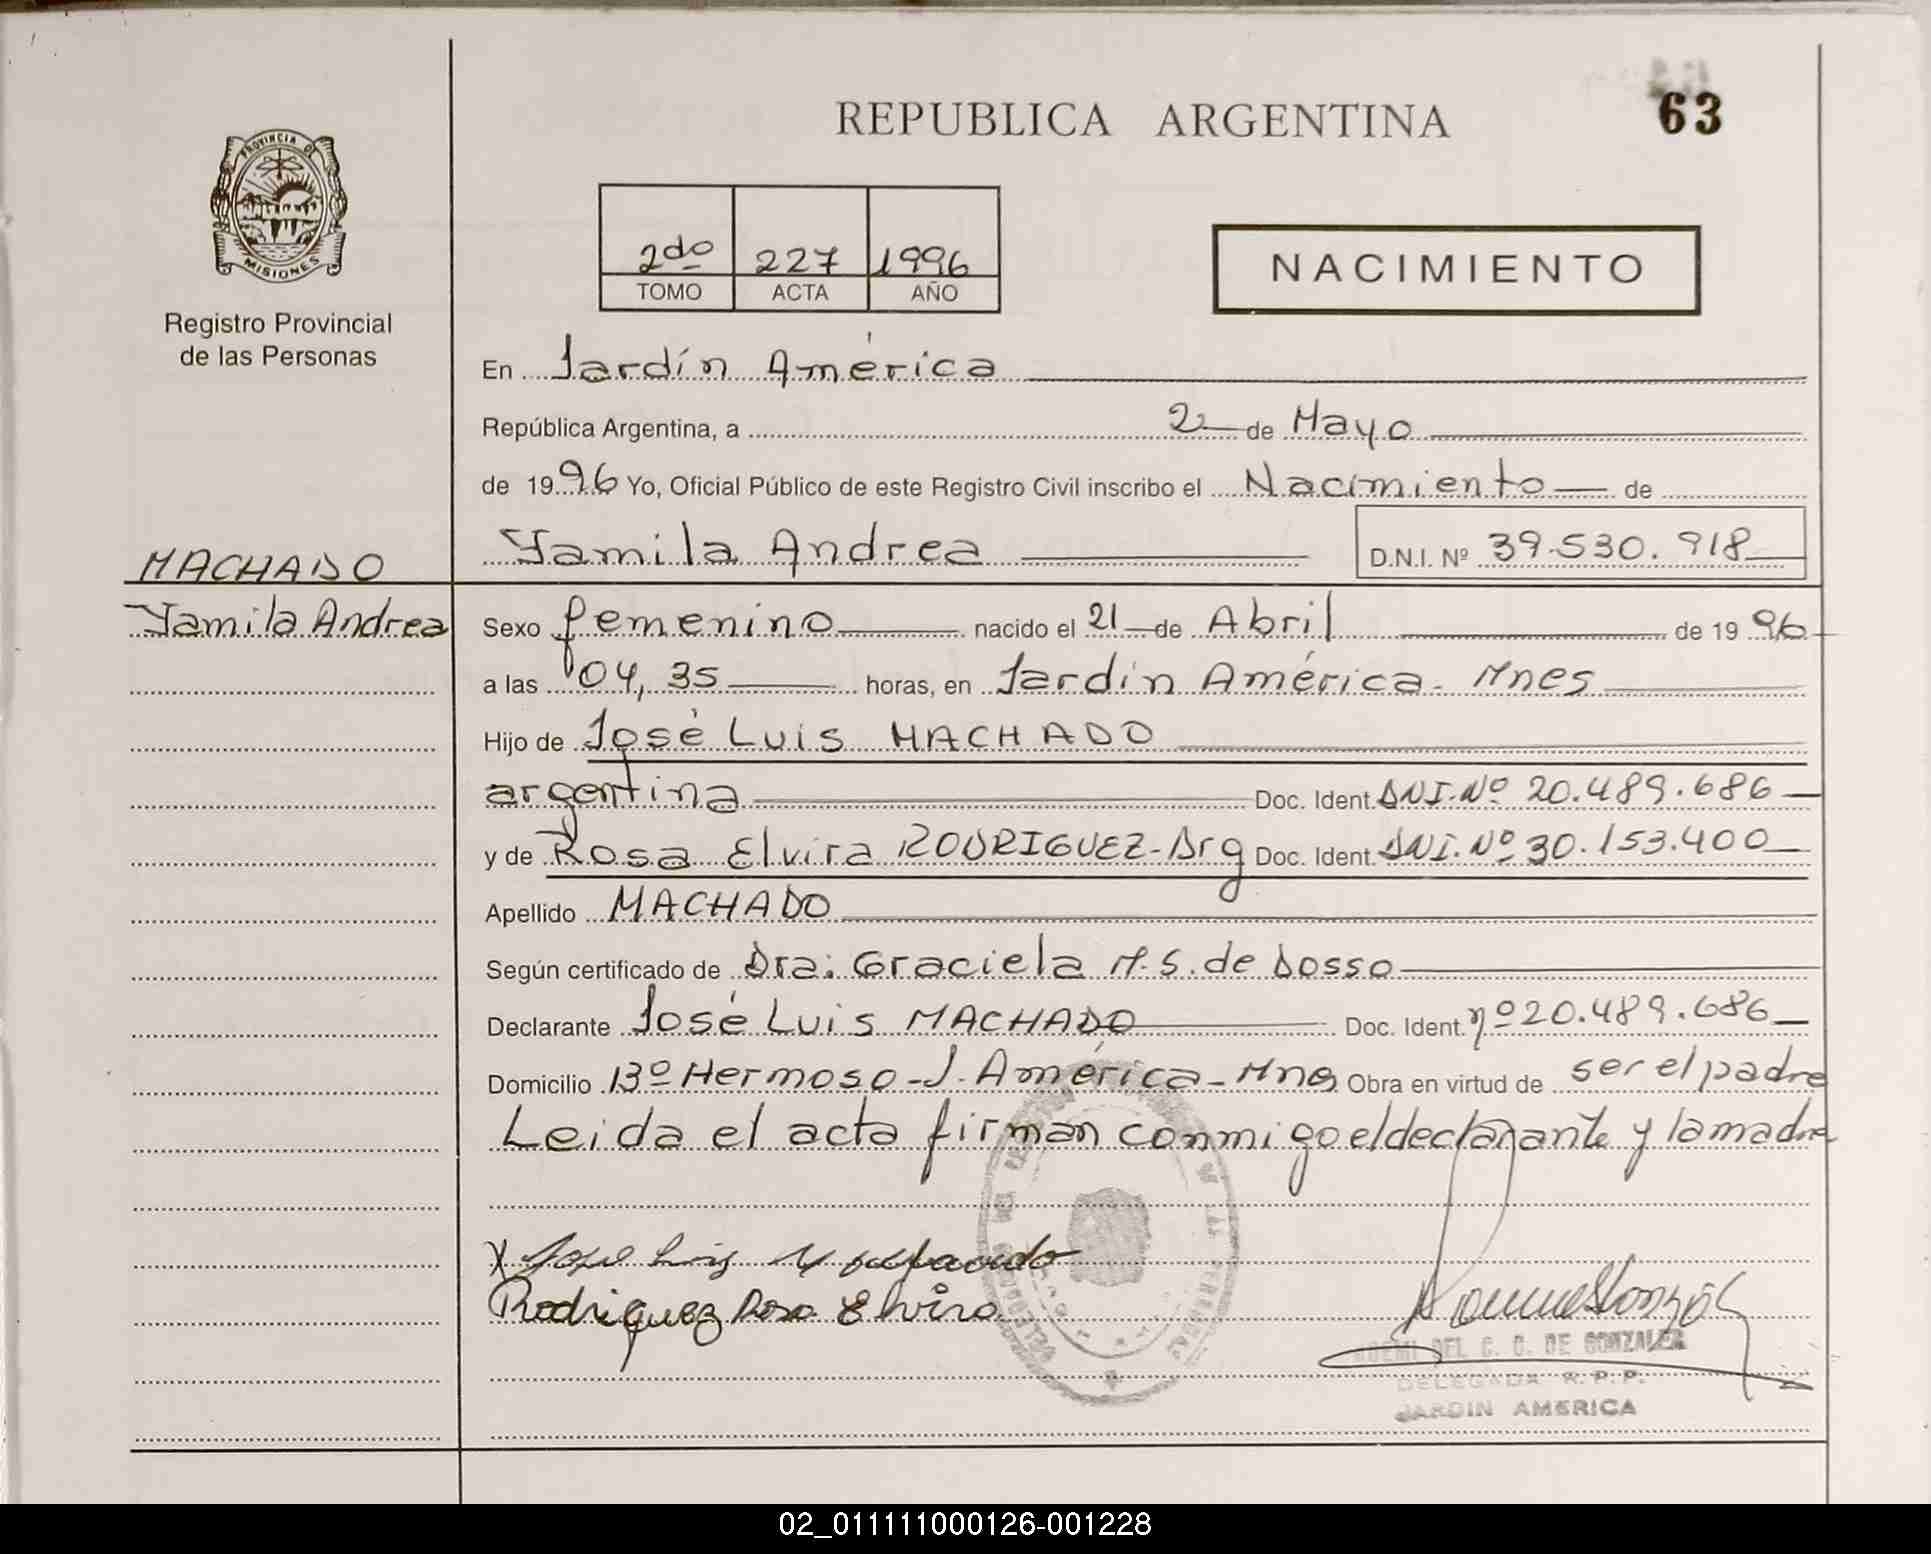 REPUBLICA ARGENTINA
63
PROVINCIA DE
MISIONES
Registro Provincial
de las Personas
2do 227 1996
TOMO ACTA AÑO
NACIMIENTO
En Jardín América
República Argentina, a 2 de Mayo
de 1996 Yo, Oficial Público de este Registro Civil inscribo el Nacimiento de
Yamila Andrea D.N.I. Nº 39.530.918
MACHADO
Yamila Andrea
Sexo femenino nacido el 21 de Abril de 1996
a las 04,35 horas, en Jardín América. Mnes
Hijo de José Luis MACHADO
argentina Doc. Ident. DNI.Nº 20.489.686
y de Rosa Elvira RODRIGUEZ-Arg Doc. Ident. DNI.Nº 30.153.400
Apellido MACHADO
Según certificado de Dra: Graciela M.S. de Dosso
Declarante José Luis MACHADO Doc. Ident. nº 20.489.686
Domicilio Bº Hermoso-J. América-Mnes Obra en virtud de ser el padre
Leida el acta firman conmigo el declarante y la madre
X Jose Luis Machado
Rodriguez Rosa Elvira
NOEMI DEL C. C. DE GONZALEZ
DELEGADA R.P.P.
JARDIN AMERICA
02_011111000126-001228